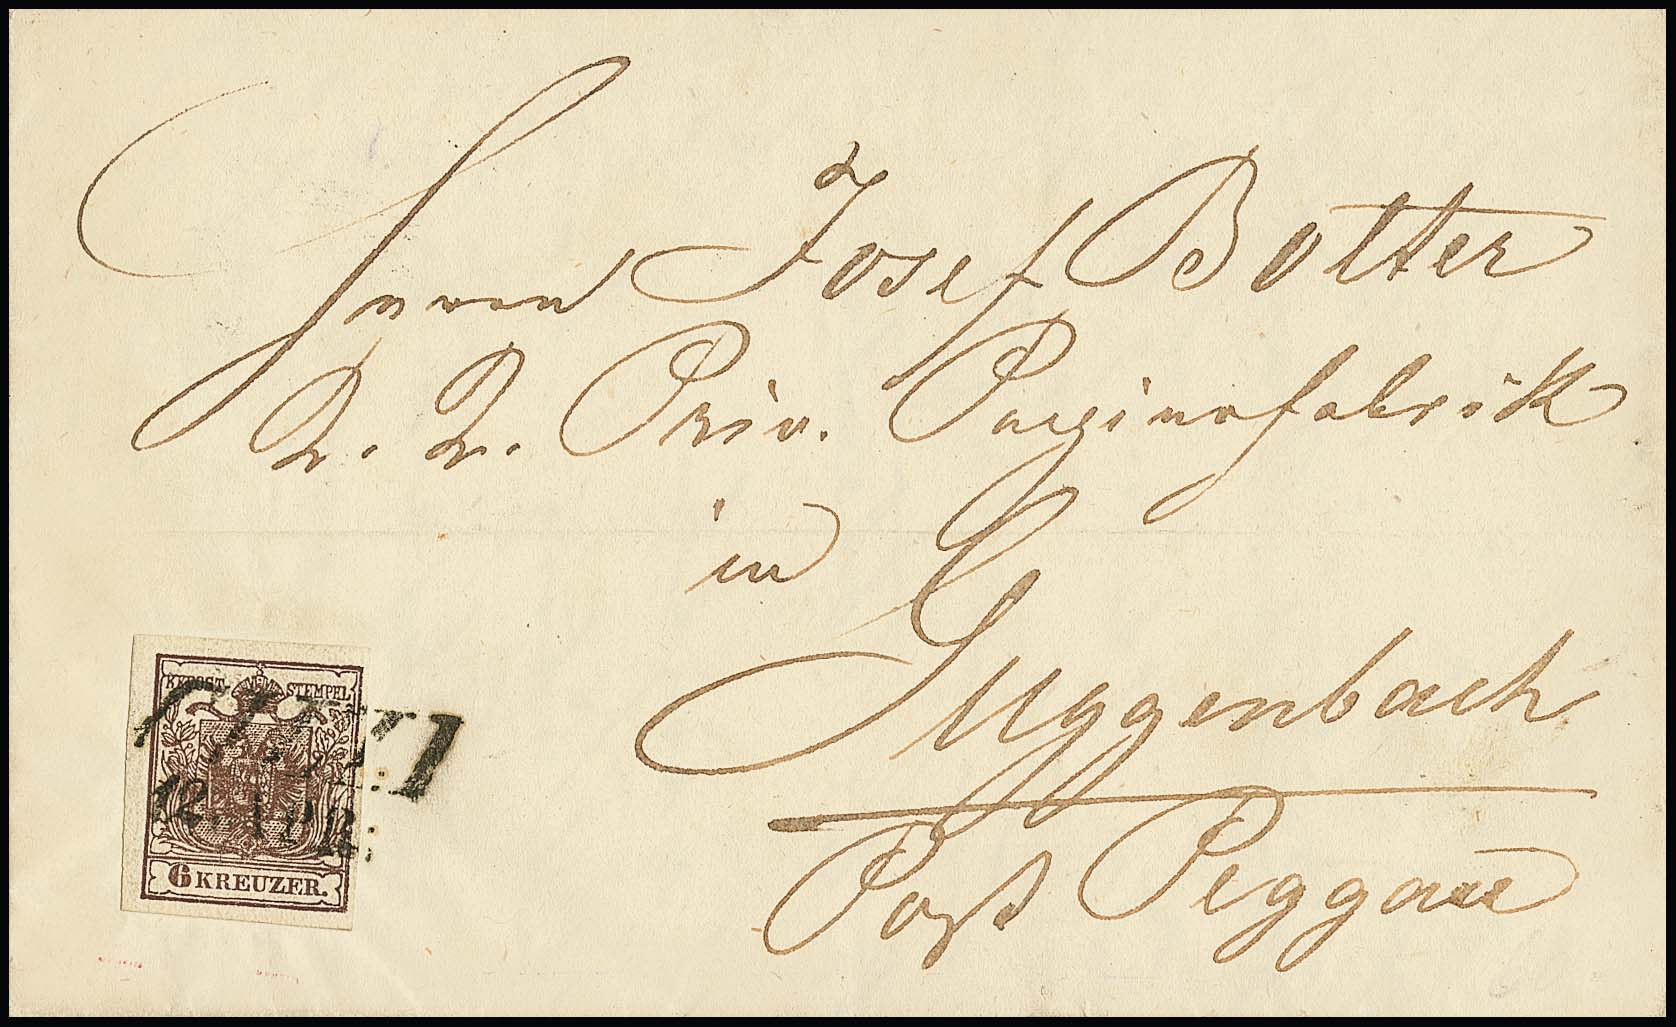 Herrn Josef Bolter
K. K. Priv. Papierfabrik
in
Guggenbach
Post Peggau
KK POST-STEMPEL
CILLI
12. APR:
6 KREUZER.